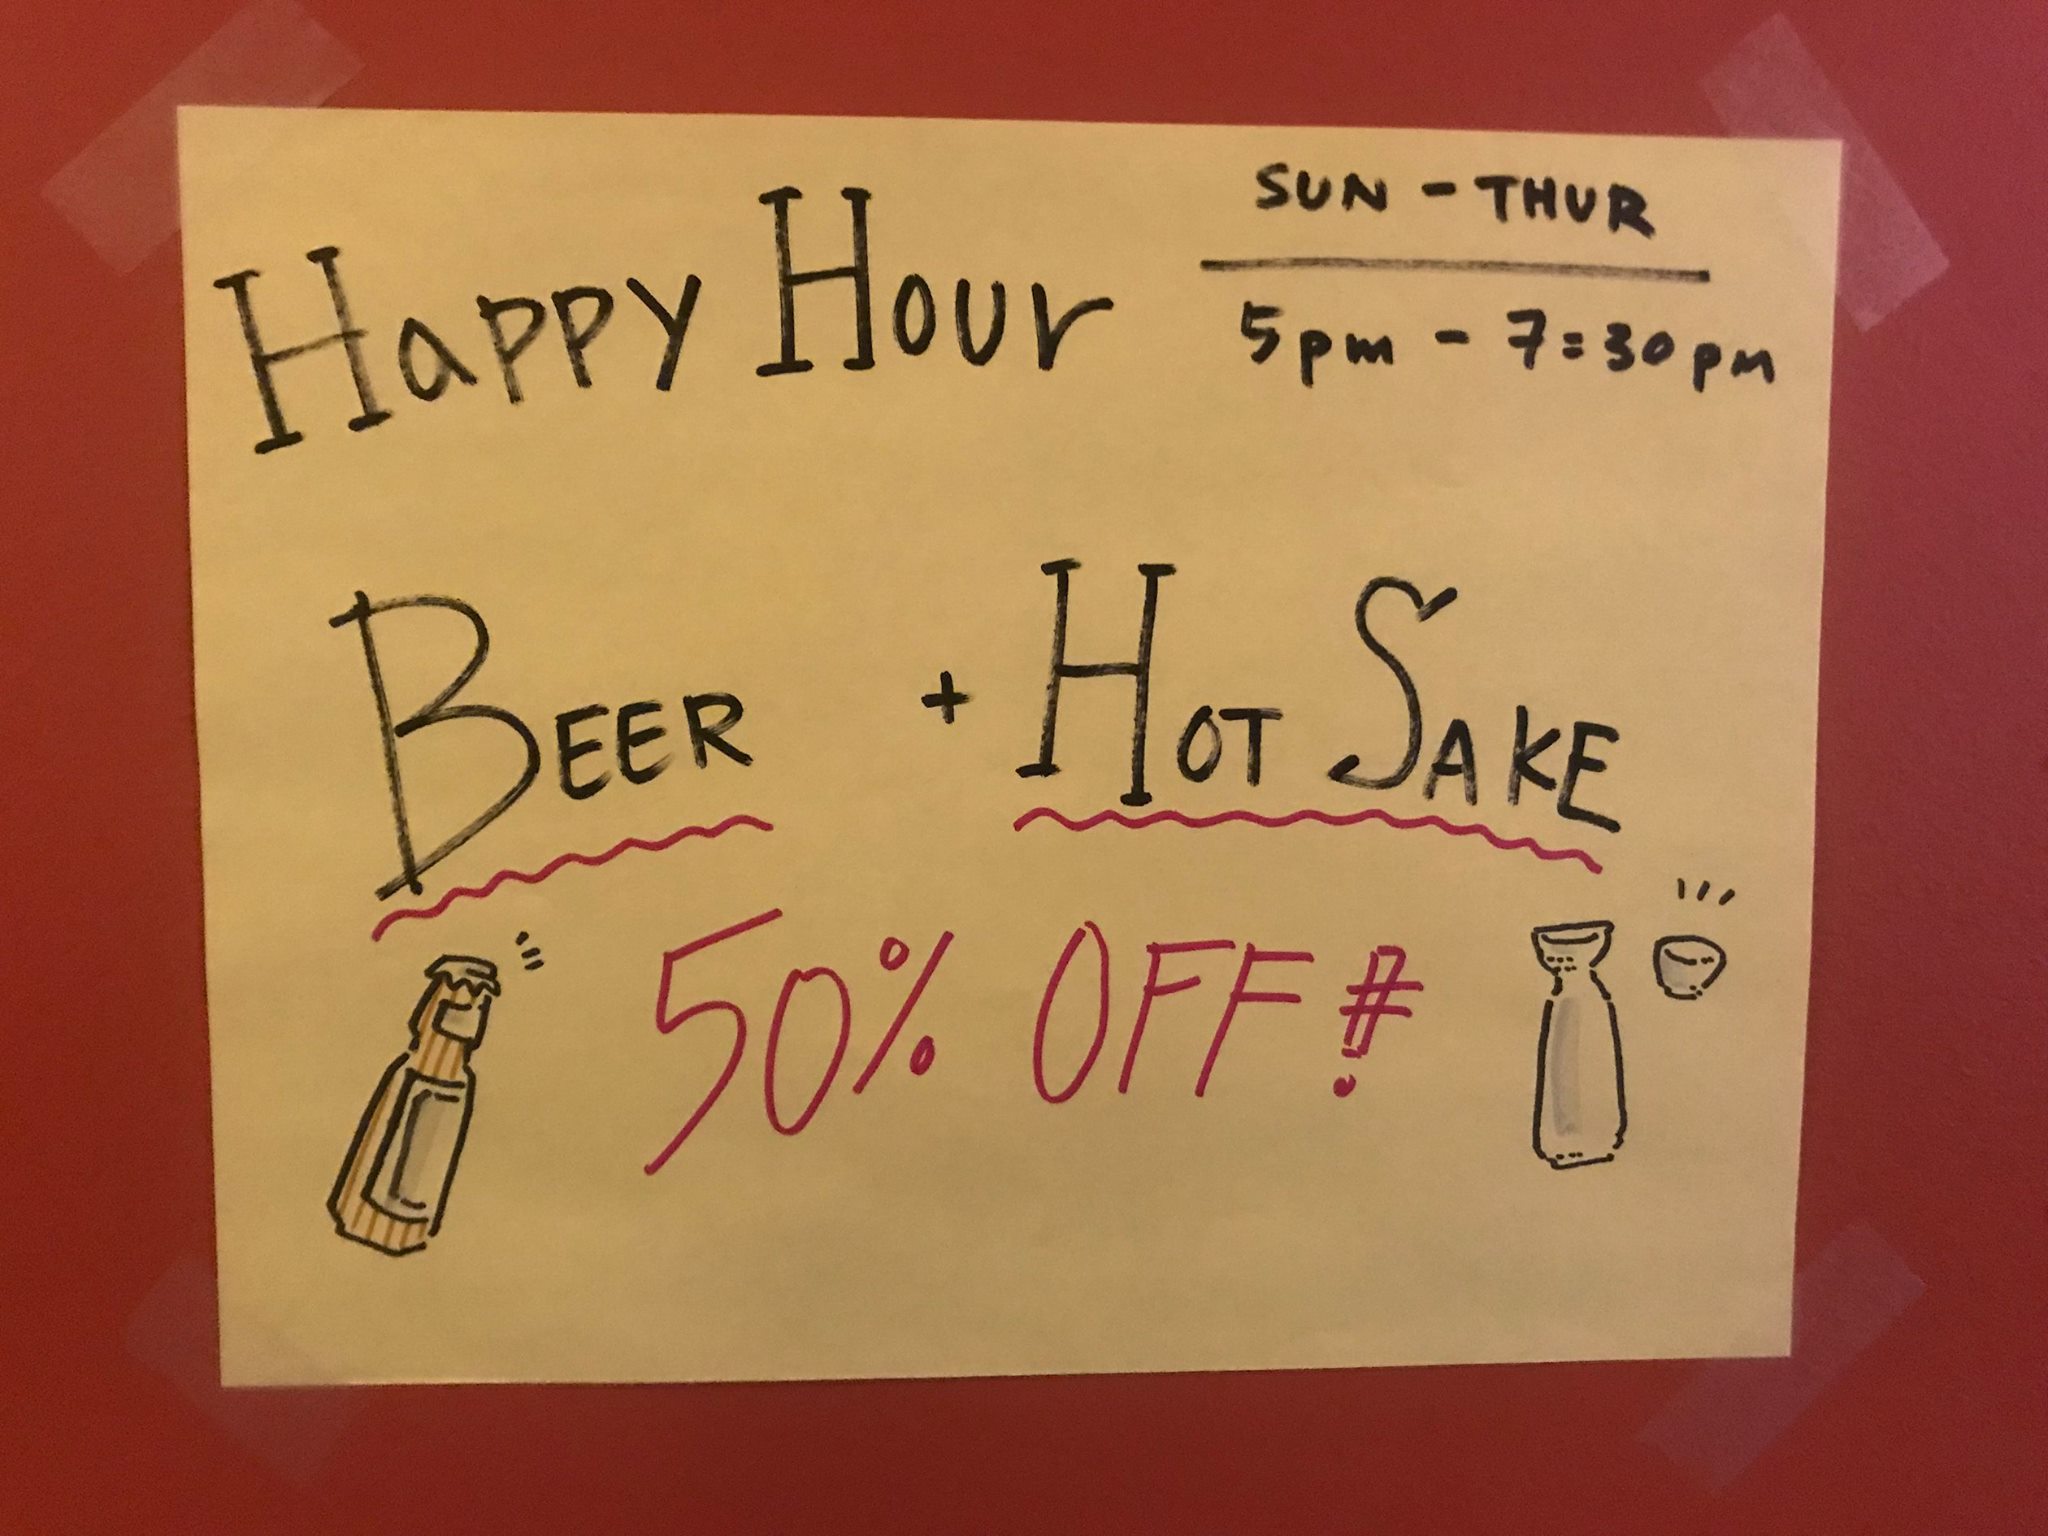 Happy Hour
SUN - THUR
5pm - 7:30pm
BEER + HOT SAKE
50% OFF!